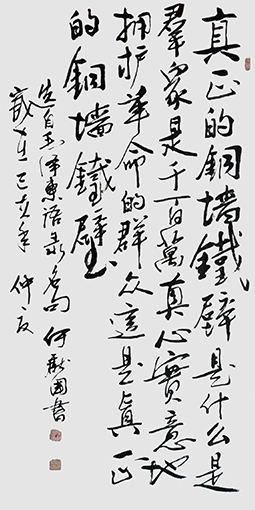 真正的铜墙鐵壁是什么是
羣众是千百萬真心實意地
拥护革命的群众這是真正
的銅墙鐵壁
选自毛泽东语录名句何献国书
岁在己亥年仲夏